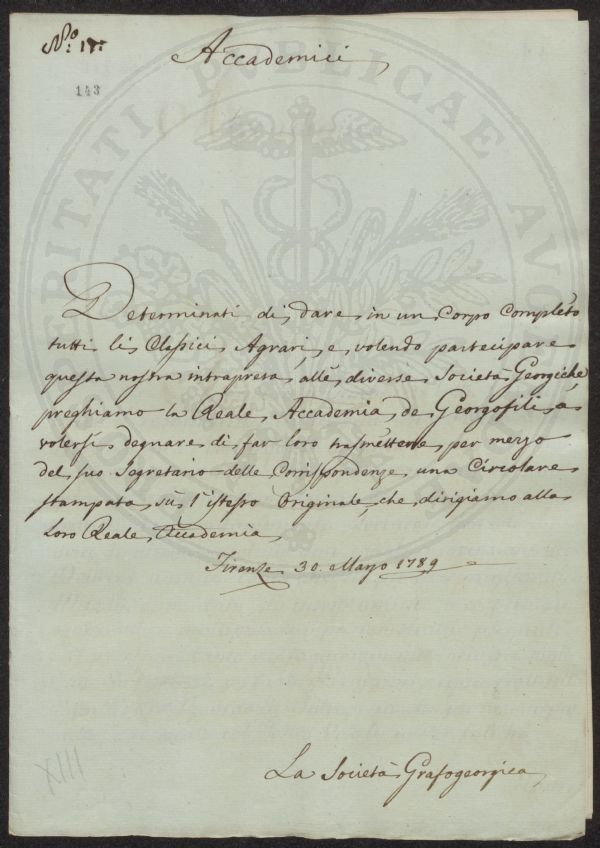 N.o 17:
Accademici
143
Determinati di dare in un Corpo completo
tutti li Classici Agrari e volendo partecipare
questa nostra intrapresa alle diverse Società Georgiche
preghiamo la Reale Accademia de Georgofili a
volersi degnare di far loro trasmettere per mezzo
del suo Segretario delle Corrispondenze una Circolare
stampata sù l'istesso Originale che dirigiamo alla
Loro Reale Accademia
Firenze 30. Marzo 1789
La Società Grafogeorgica
XIII